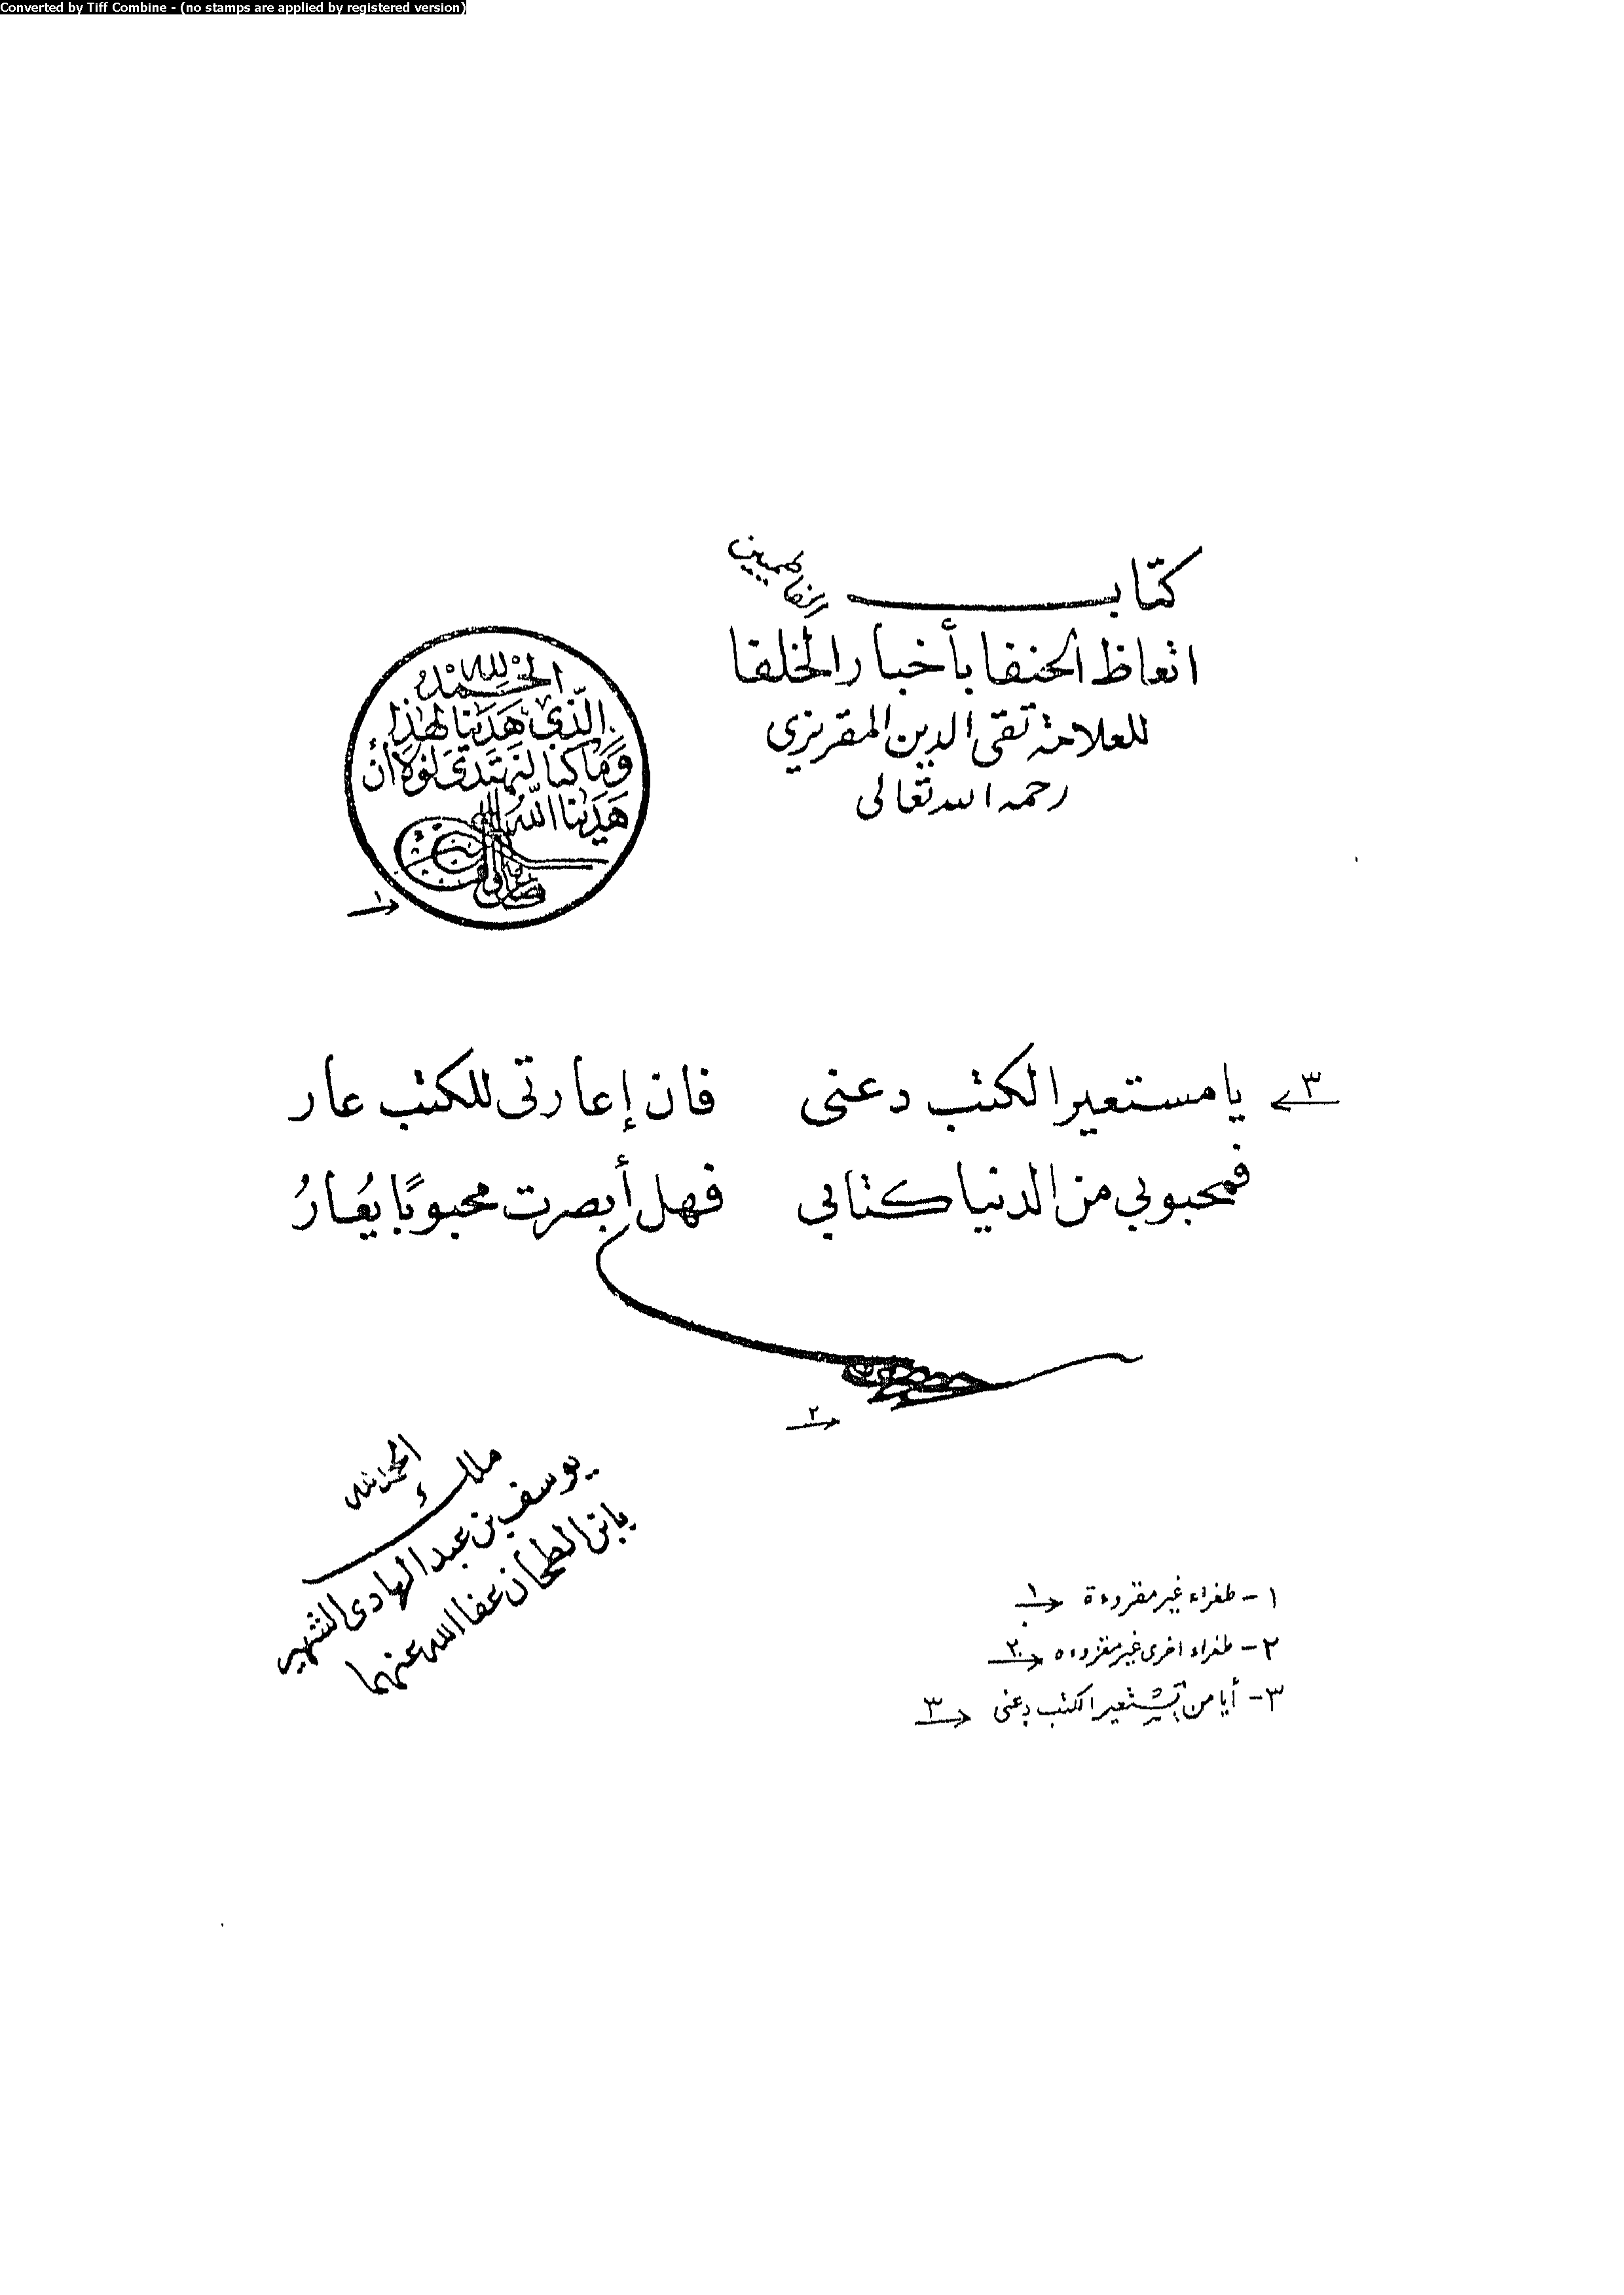 Converted by Tiff Combine - (no stamps are applied by registered version)
كتاب
اتعاظ الحنفا بأخبار الخلفا
للعلامة تقى الدين المقريزي
رحمه الله تعالى
الحمد لله
الذي هدينا لهذا
وما كنا لنهتدى لولا أن
هدينا الله
١
٣ يا مستعير الكتب دعنى فان إعارتى للكتب عار
فمحبوبي من الدنيا كتابي فهل أبصرت محبوبًا يُعارُ
٢
الحمد لله
ملك
يوسف بن عبد الهادى الشهير
بابن الطحان عفا الله عنهما
١- طغراء غير مقروءة ١
٢- طغراء اخرى غير مقروءه ٢
٣- أيا من يستعير الكتب دعنى ٣